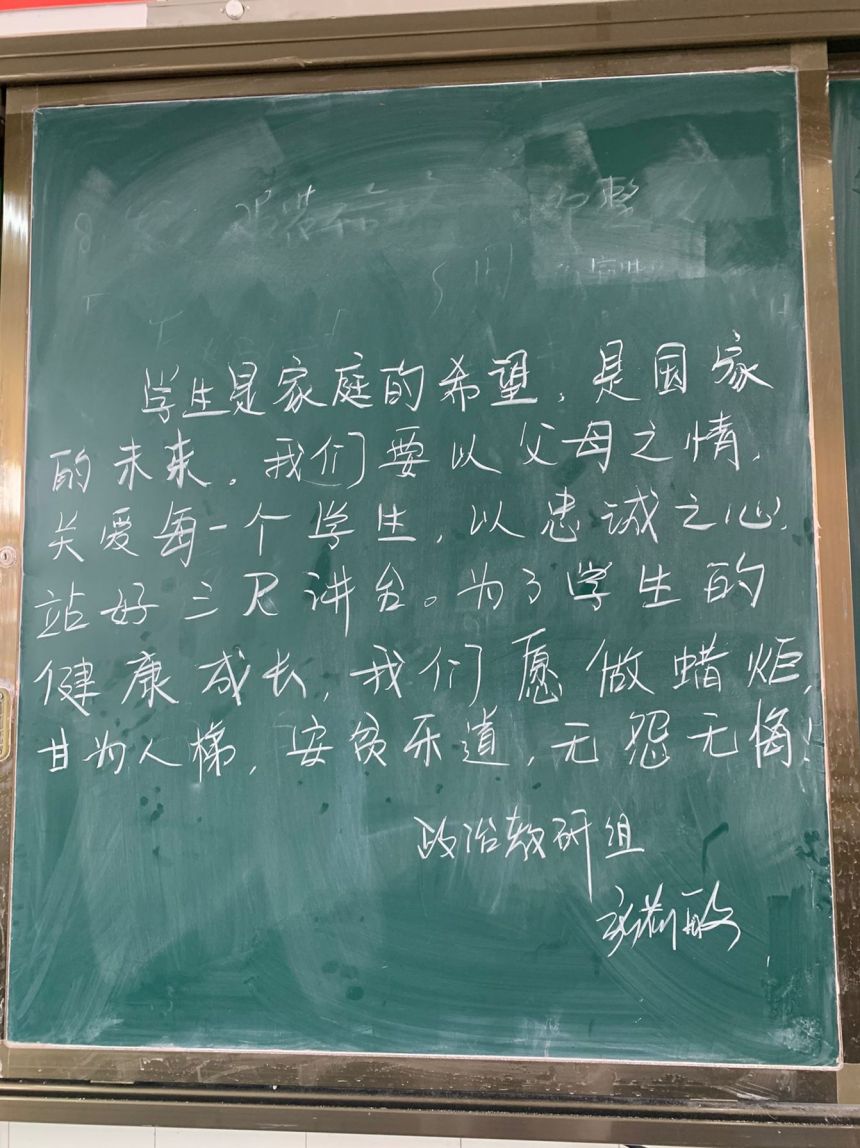 学生是家庭的希望，是国家
的未来。我们要以父母之情，
关爱每一个学生，以忠诚之心，
站好三尺讲台。为了学生的
健康成长，我们愿做蜡炬，
甘为人梯，安贫乐道，无怨无悔！
政治教研组